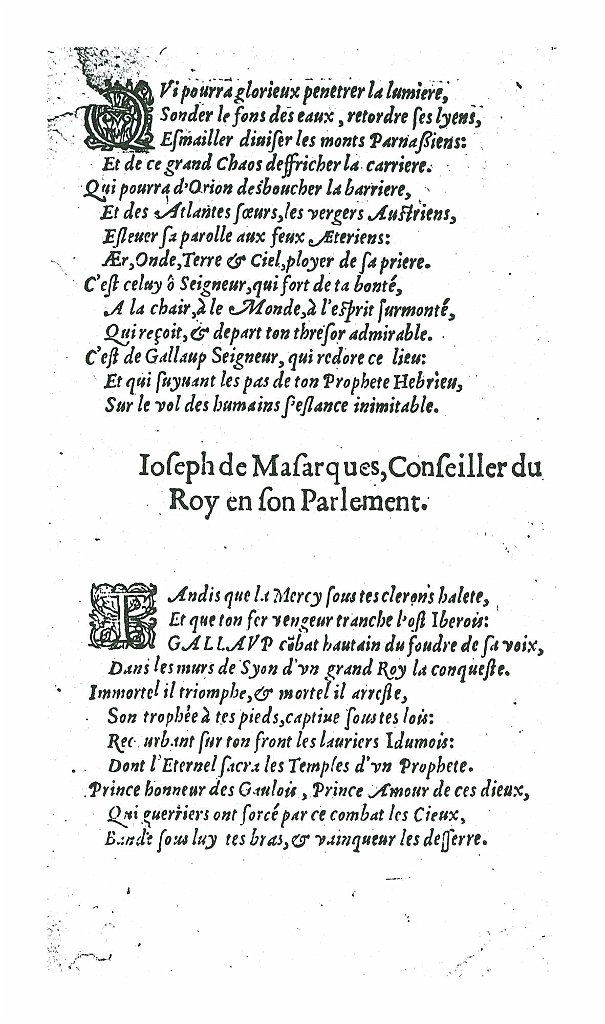 QVi pourra glorieux penetrer la lumiere,
Sonder le fons des eaux, retordre ſes lyens,
Eſmailler diuiſer les monts Parnaßiens:
Et de ce grand Chaos deffricher la carriere.
Qui pourra d'Orion desboucher la barriere,
Et des Atlantes ſœurs, les vergers Auſtriens,
Eſleuer ſa parolle aux feux Æteriens:
Ær, Onde, Terre & Ciel, ployer de ſa priere.
C'eſt celuy ô Seigneur, qui fort de ta bonté,
A la chair, à le Monde, à l'eſprit ſurmonté,
Qui reçoit, & depart ton threſor admirable.
C'eſt de Gallaup Seigneur, qui redore ce lieu:
Et qui ſuyuant les pas de ton Prophete Hebrieu,
Sur le vol des humains ſ'eſlance inimitable.
Ioſeph de Maſarques, Conſeiller du
Roy en ſon Parlement.
TAndis que la Mercy ſous tes clerons halete,
Et que ton fer vengeur tranche l'oſt Iberois:
GALLAVP cõbat hautain du foudre de ſa voix,
Dans les murs de Syon d'vn grand Roy la conqueſte.
Immortel il triomphe, & mortel il arreſte,
Son trophée à tes pieds, captiue ſous tes lois:
Recourbant ſur ton front les lauriers Idumois:
Dont l'Eternel ſacra les Temples d'vn Prophete.
Prince honneur des Gaulois, Prince Amour de ces dieux,
Qui guerriers ont forcé par ce combat les Cieux,
Bande ſous luy tes bras, & vainqueur les deſſerre.